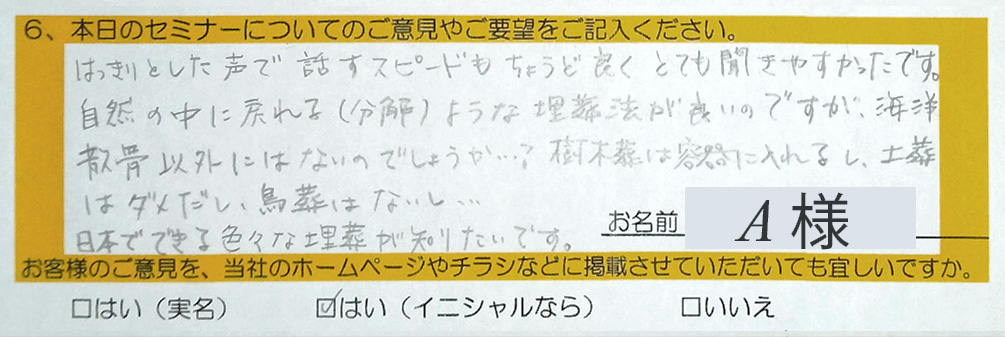 6、本日のセミナーについてのご意見やご要望をご記入ください。
はっきりとした声で話すスピードもちょうど良くとても聞きやすかったです。
自然の中に戻れる(分解)ような埋葬法が良いのですが、海洋
散骨以外にはないのでしょうか…? 樹木葬は容器に入れるし、土葬
はダメだし、鳥葬はないし…
日本でできる色々な埋葬が知りたいです。
お名前 A様
お客様のご意見を、当社のホームページやチラシなどに掲載させていただいても宜しいですか。
□はい(実名) ☑はい(イニシャルなら) □いいえ